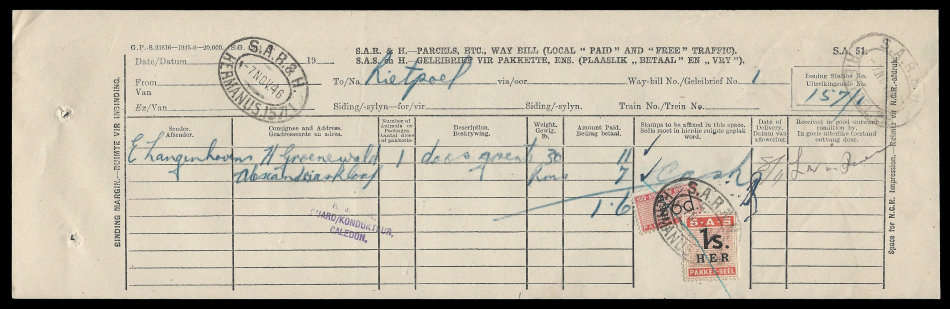 S.A.R. & H.—PARCELS, ETC., WAY BILL (LOCAL "PAID" AND "FREE" TRAFFIC).
S.A. 51.
S.A.S. en H.—GELEIBRIEF VIR PAKKETTE, ENS. (PLAASLIK „BETAAL" EN „VRY").
Date/Datum 19
S.A.R. & H.
7 NOV. 46
HERMANUS 1571
From
Van
To/Na Rietpoel via/oor Way-bill No./Geleibrief No. 1
Issuing Station No.
Uitreikingstasie No.
157/1
Ex/Van Siding/-sylyn—for/vir Siding/-sylyn. Train No./Trein No.
Sender. Afsender.
Consignee and Address. Geadresseerde en adres.
Description. Beskrywing.
Weight. Gewig.
Amount Paid. Bedrag betaal.
Stamps to be affixed in this space.
Seëls moet in hierdie ruimte geplak word.
Date of Delivery. Datum van aflewering.
Received in good order and condition by.
In goeie uiterlike toestand ontvang deur.
H Groenewald 1 30 11
7 Cash
1.6
GUARD/KONDUKTEUR,
CALEDON.
6d.
S.A.R.
HERMANUS
S·A·S
1s.
HER
PAKKE-SEËL
BINDING MARGIN.—RUIMTE VIR INBINDING.
Space for N.G.R. Impression.—Ruimte vir N.G.R.-afdruk.